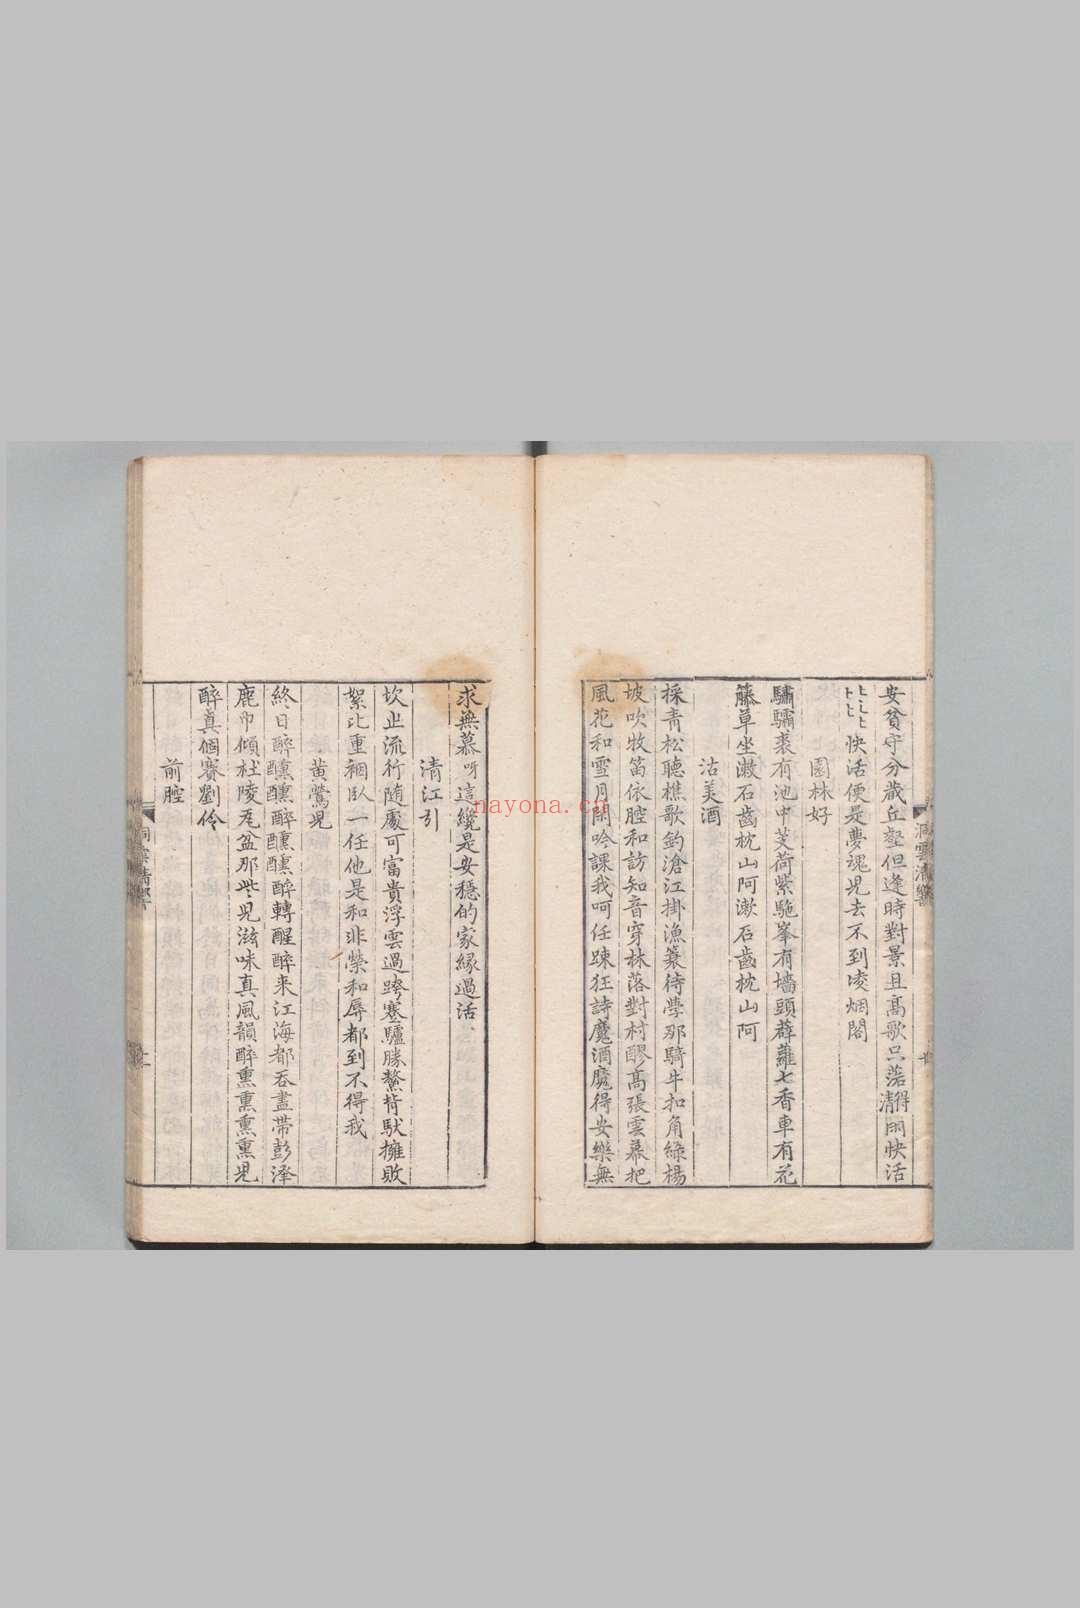 安貧守分藏丘壑但逢時對景且高歌只落得清閑快活
快活便是夢魂兒去不到凌烟閣
園林好
驌驦裘有池中芰荷紫駞峯有墻頭薜蘿七香車有花
籐草坐漱石齒枕山阿漱石齒枕山阿
沽美酒
採青松聽樵歌釣滄江掛漁簑待學那騎牛扣角綠楊
坡吹牧笛依腔和訪知音穿林落對村醪高張雲幕把
風花和雪月閑吟課我呵任踈狂詩魔酒魔得安樂無
洞雲清響
求無慕呀這纔是安穩的家緣過活
清江引
坎止流行隨處可富貴浮雲過跨蹇驢勝鰲背馱擁敗
絮比重裀臥一任他是和非榮和辱都到不得我
黃鶯兒
終日醉醺醺醉醺醺醉轉醒醉来江海都吞盡帶彭澤
鹿巾傾杜陵瓦盆那些兒滋味真風韻醉熏熏熏熏兒
醉真個賽劉伶
前腔
洞雲清響
nayona.cn